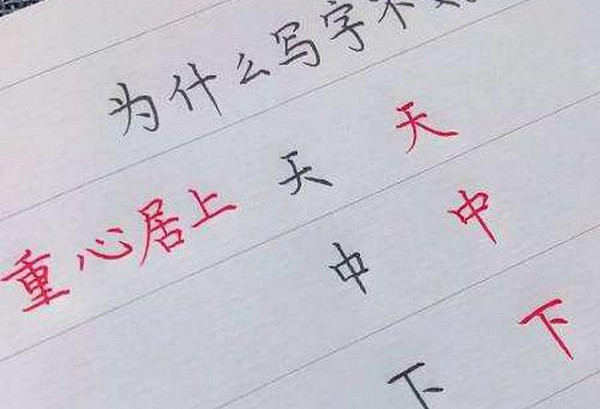 为什么写字不
重心居上 天 天
中 中
下 下